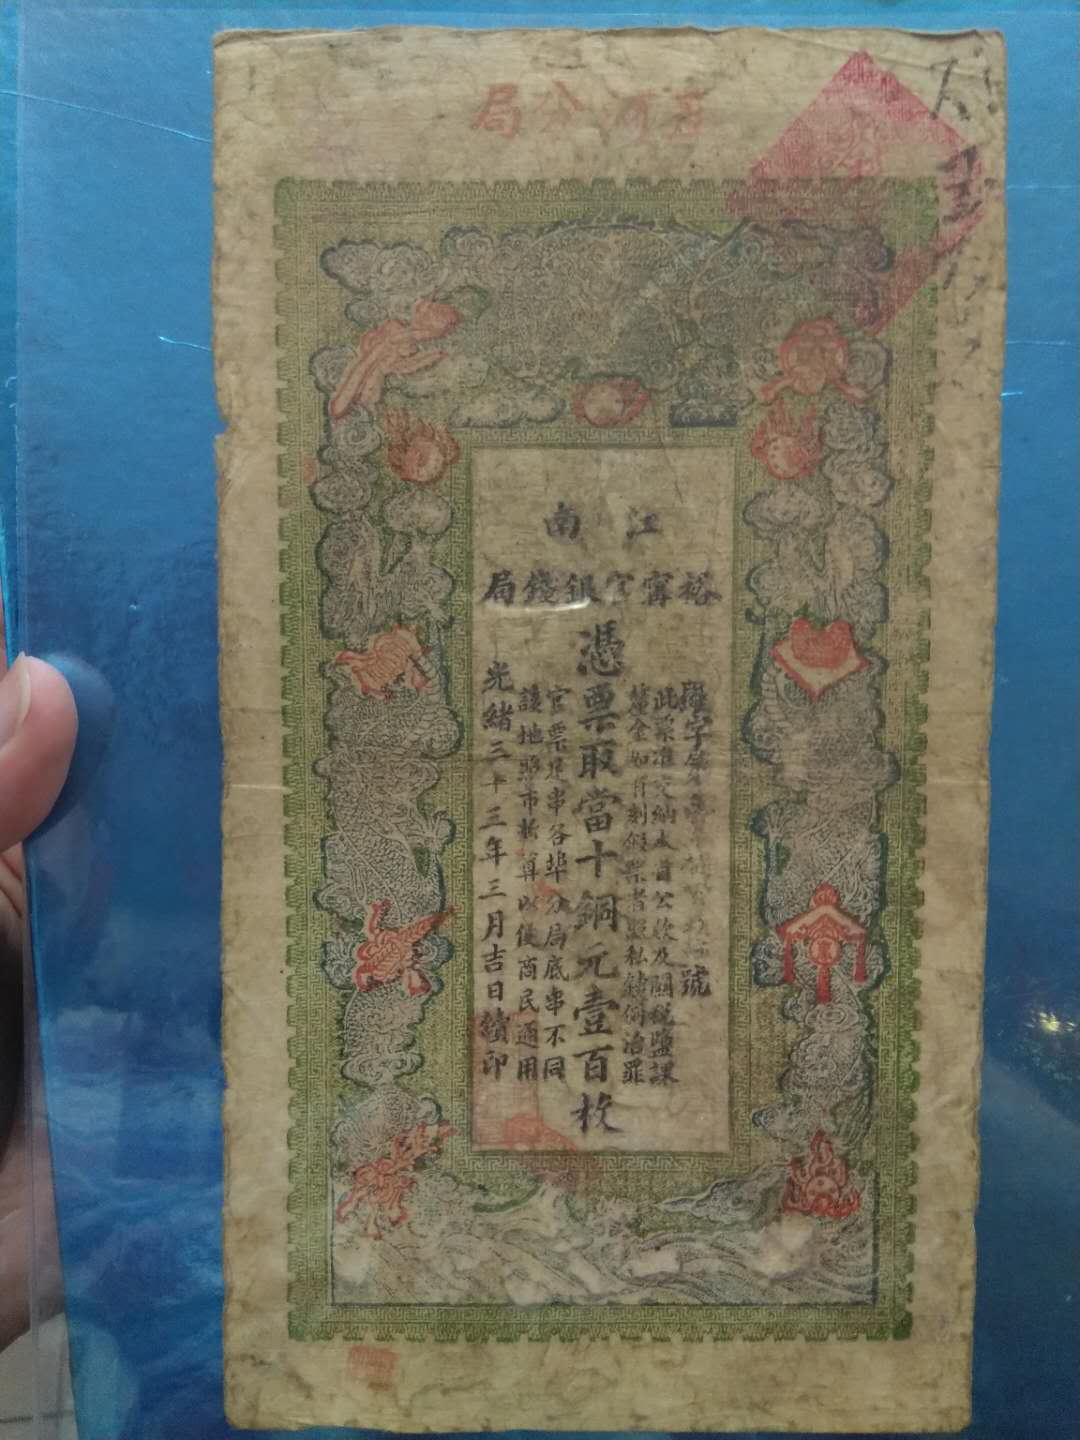 清河分局
江南
裕寧官銀錢局
字第號
此票准交納本省公款及關稅鹽課
釐金如有刻假票者照私鑄例治罪
憑票取當十銅元壹百枚
官票是串各埠分局底串不同
議地照市折算以便商民通用
光緒三十三年三月吉日續印